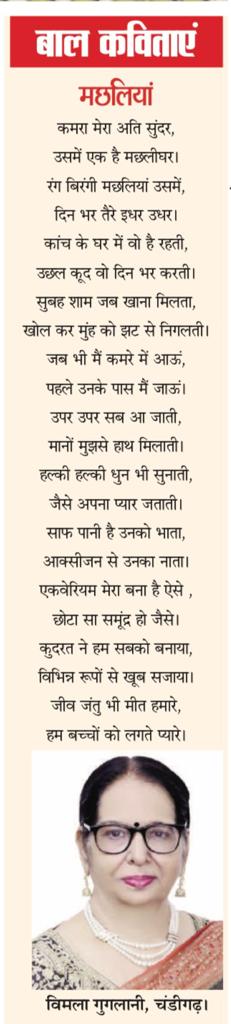 बाल कविताएं
मछलियां
कमरा मेरा अति सुंदर,
उसमें एक है मछलीघर।
रंग बिरंगी मछलियां उसमें,
दिन भर तैरे इधर उधर।
कांच के घर में वो है रहती,
उछल कूद वो दिन भर करती।
सुबह शाम जब खाना मिलता,
खोल कर मुंह को झट से निगलती।
जब भी मैं कमरे में आऊं,
पहले उनके पास मैं जाऊं।
उपर उपर सब आ जाती,
मानों मुझसे हाथ मिलाती।
हल्की हल्की धुन भी सुनाती,
जैसे अपना प्यार जताती।
साफ पानी है उनको भाता,
आक्सीजन से उनका नाता।
एकवेरियम मेरा बना है ऐसे ,
छोटा सा समूंद्र हो जैसे।
कुदरत ने हम सबको बनाया,
विभिन्न रूपों से खूब सजाया।
जीव जंतु भी मीत हमारे,
हम बच्चों को लगते प्यारे।
विमला गुगलानी, चंडीगढ़।